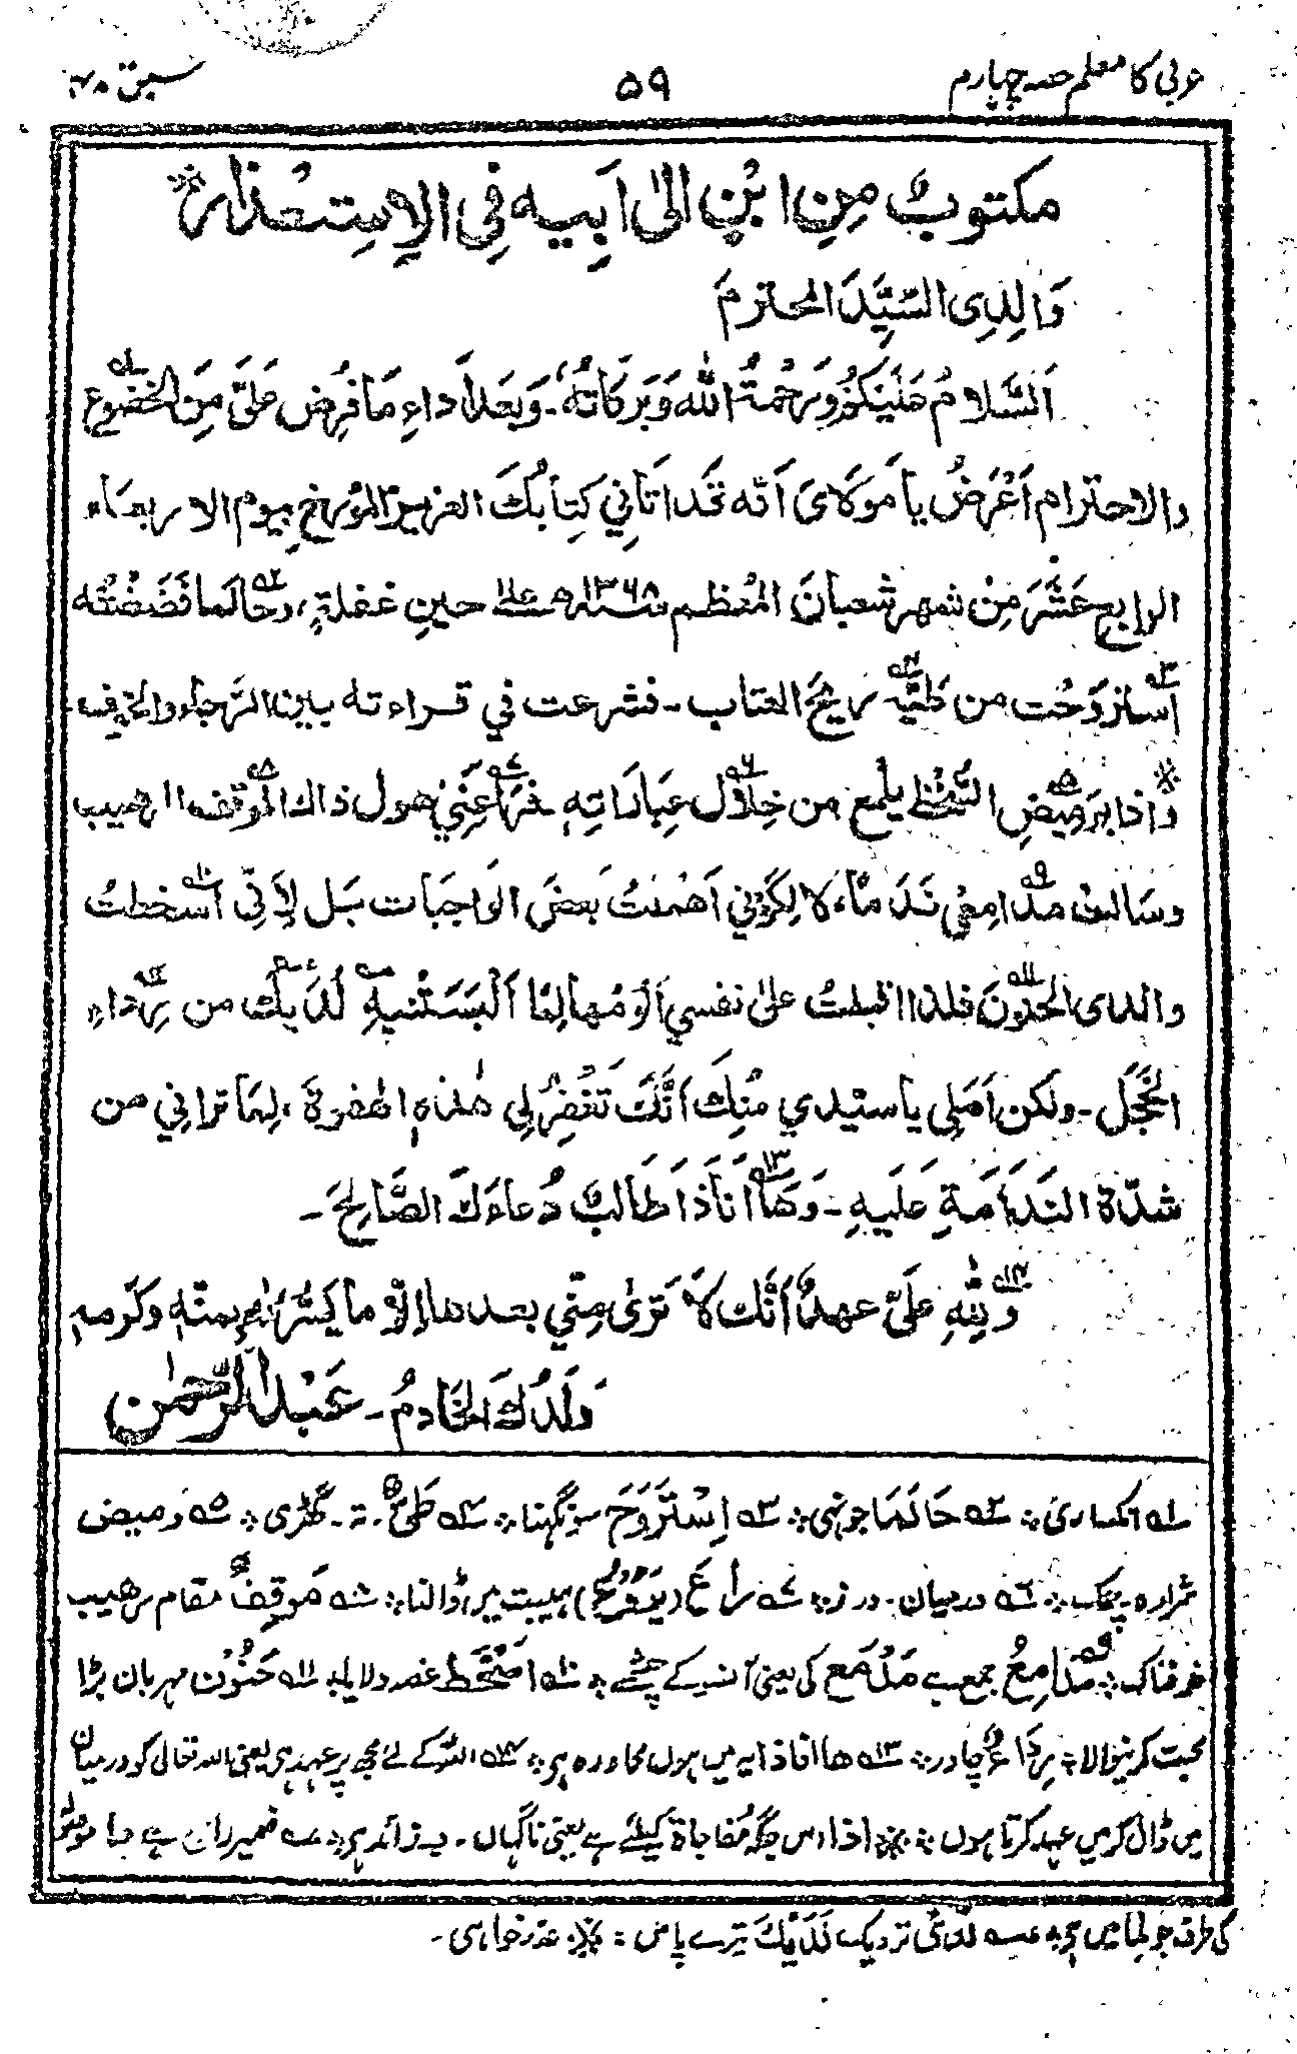 عربی کا معلم حصہ چہارم ۵۹ سبق ۴۸
مکتوبٌ مِن ابْنٍ الىٰ اَبِیه فِی الاِستِعْذَار
وَالِدِی السَّیِّدَ المحترمَ
اَلسَّلامُ عَلَیْکُمْ وَرَحْمَةُ اللّٰهِ وَبَرَکَاتُهٗ۔ وَبَعْدَ اَداءِ مَا فُرِضَ عَلَیَّ مِنَ الخُضُوعِ ؎۱
والاحترام اَعْرِضُ یا مَولَایَ اَنّه قَد اَتَانِي کِتَابُکَ العزیز المؤرخ بِیوم الاربعاء
الرابع عَشَرَ مِنْ شهر شعبانَ المُعظم سنه ۱۳۶۸ھ علیٰ حینِ غفلةٍ، وحالَما ؎۲ فَضَضْتُه
اِسترْوَحْت ؎۳ من طَیِّه ؎۴ رِیْحَ العتاب۔ فشرعت في قراءته بین الرجاء والخِیفه
واذا بوَمِیضِ ؎۵ السُّخْطِ یلمع من خِلَالِ ؎۶ عِبَارَاتِهٖ فَرَاعَنِيْ ؎۷ هول ذاك المَوقِف ؎۸ الرهیب
وسَالت مدامِعِي ؎۹ نَدَماً، لا لِکَوْنِي اَهْمَلْتُ بَعضَ الوَاجِبَات بَل لِاَنّی اَسْخطتُ ؎۱۰
والدی الحَنُونَ ؎۱۱ فلذا اقبلتُ علیٰ نفسي اَلُومُها لِمَا اَلْبَسَتْنِیهِ لَدَیْكَ من رِدَاءِ ؎۱۲
الخَجَل۔ ولکن اَمَلِی یا سیّدي مِنْكَ اَنَّكَ تَغْفِرُ لِی هٰذِهِ الهَفوةَ، لِمَا تراني من
شدّة النَدَامَةِ عَلَیهِ۔ وَهَا ؎۱۳ اَنَا ذَا طَالِبٌ دُعاءَكَ الصَّالِحَ۔
وَلِلّٰهِ ؎۱۴ عَلَیَّ عهدٌ اَنَّك لَا تَرىٰ مِنّي بعدها اِلّا ما یَسُرّكَ بِمنّهٖ وکَرمهٖ
وَلَدُكَ الخَادِمُ۔ عَبْدُ الرَّحمٰن
؎۱ انکساری ؎۲ حَالَمَا جونہی ؎۳ اِسْتَرْوَحَ سونگھنا ؎۴ طَیٌّ۔ ة۔ گٹھڑی ؎۵ ومیض
شرارہ۔ چمک ؎۶ درمیان۔ درز ؎۷ رَاعَ (یَرُوْعُ) ہیبت میں ڈالنا ؎۸ مَوقِفٌ مقام رھیب
خوفناک ؎۹ مَدَامِعُ جمع ہے مَدْمَع کی یعنی آنسو کے چشمے ؎۱۰ اَسْخَطَ غصہ دلایا ؎۱۱ حَنُوْن مہربان بڑا
محبت کرنیوالا رِدَاءٌ چادر ؎۱۳ ھا انا ذا یہ میں ہوں محاورہ ہے ؎۱۴ اللہ کے لئے مجھ پر عہد ہے یعنی اللہ تعالیٰ کو درمیان
میں ڈال کر میں عہد کرتا ہوں اذا اس جگہ مُفاجاة کیلئے ہے یعنی ناگہاں۔ ب زائد ہے ضمیر
کی طرف جو لِمَا میں ہے لَدٰی نزدیک لَدَیْكَ تیرے پاس عذر خواہی۔